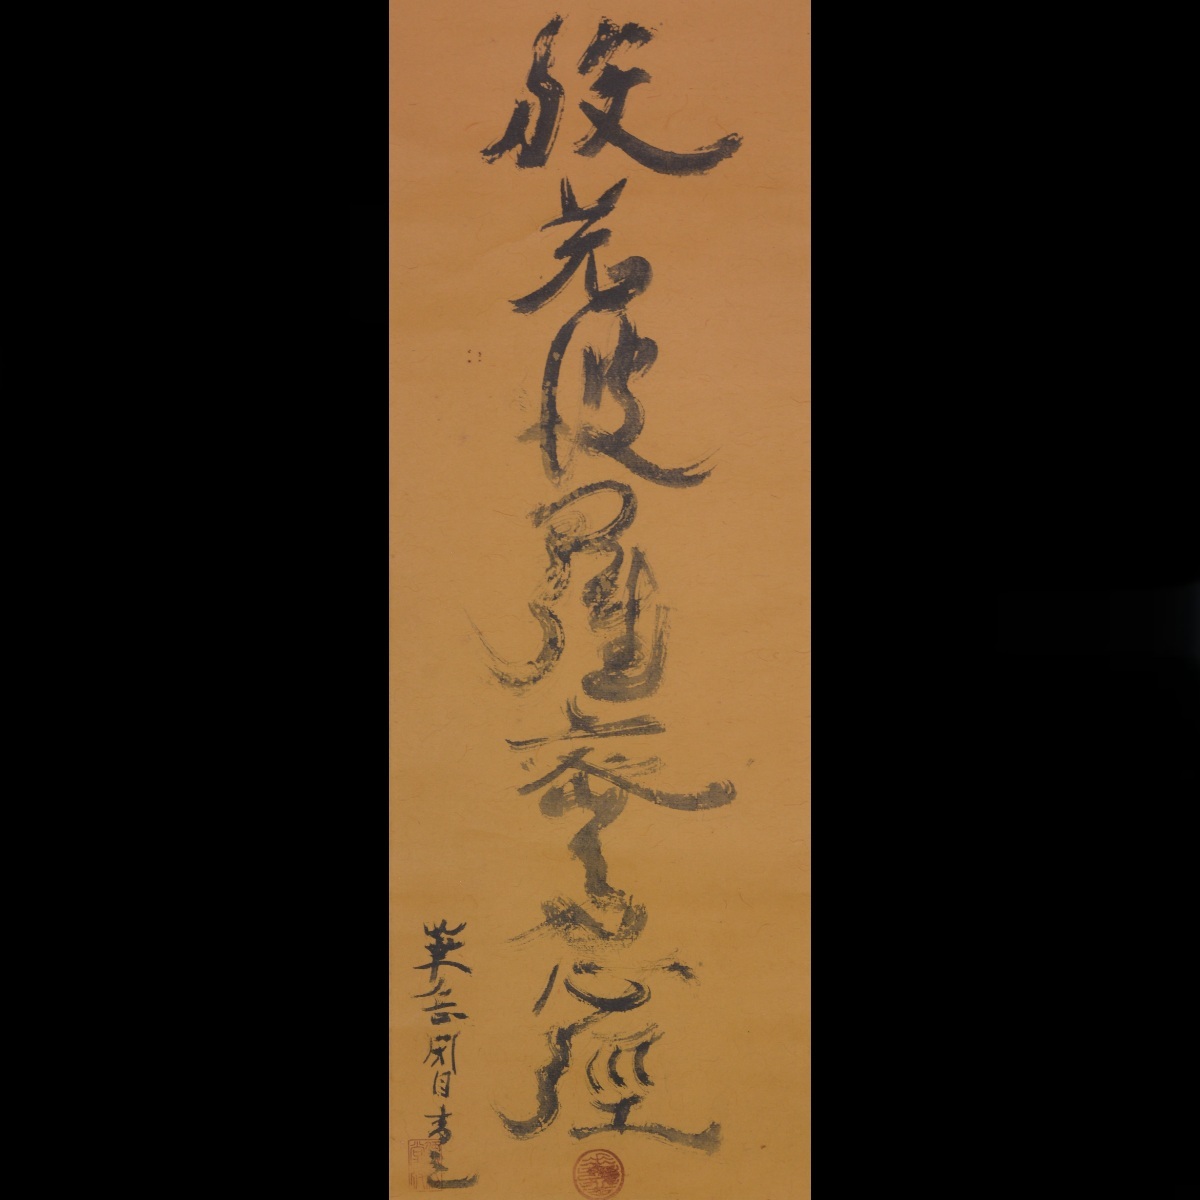 般若波羅蜜心經
華岳閉目書之